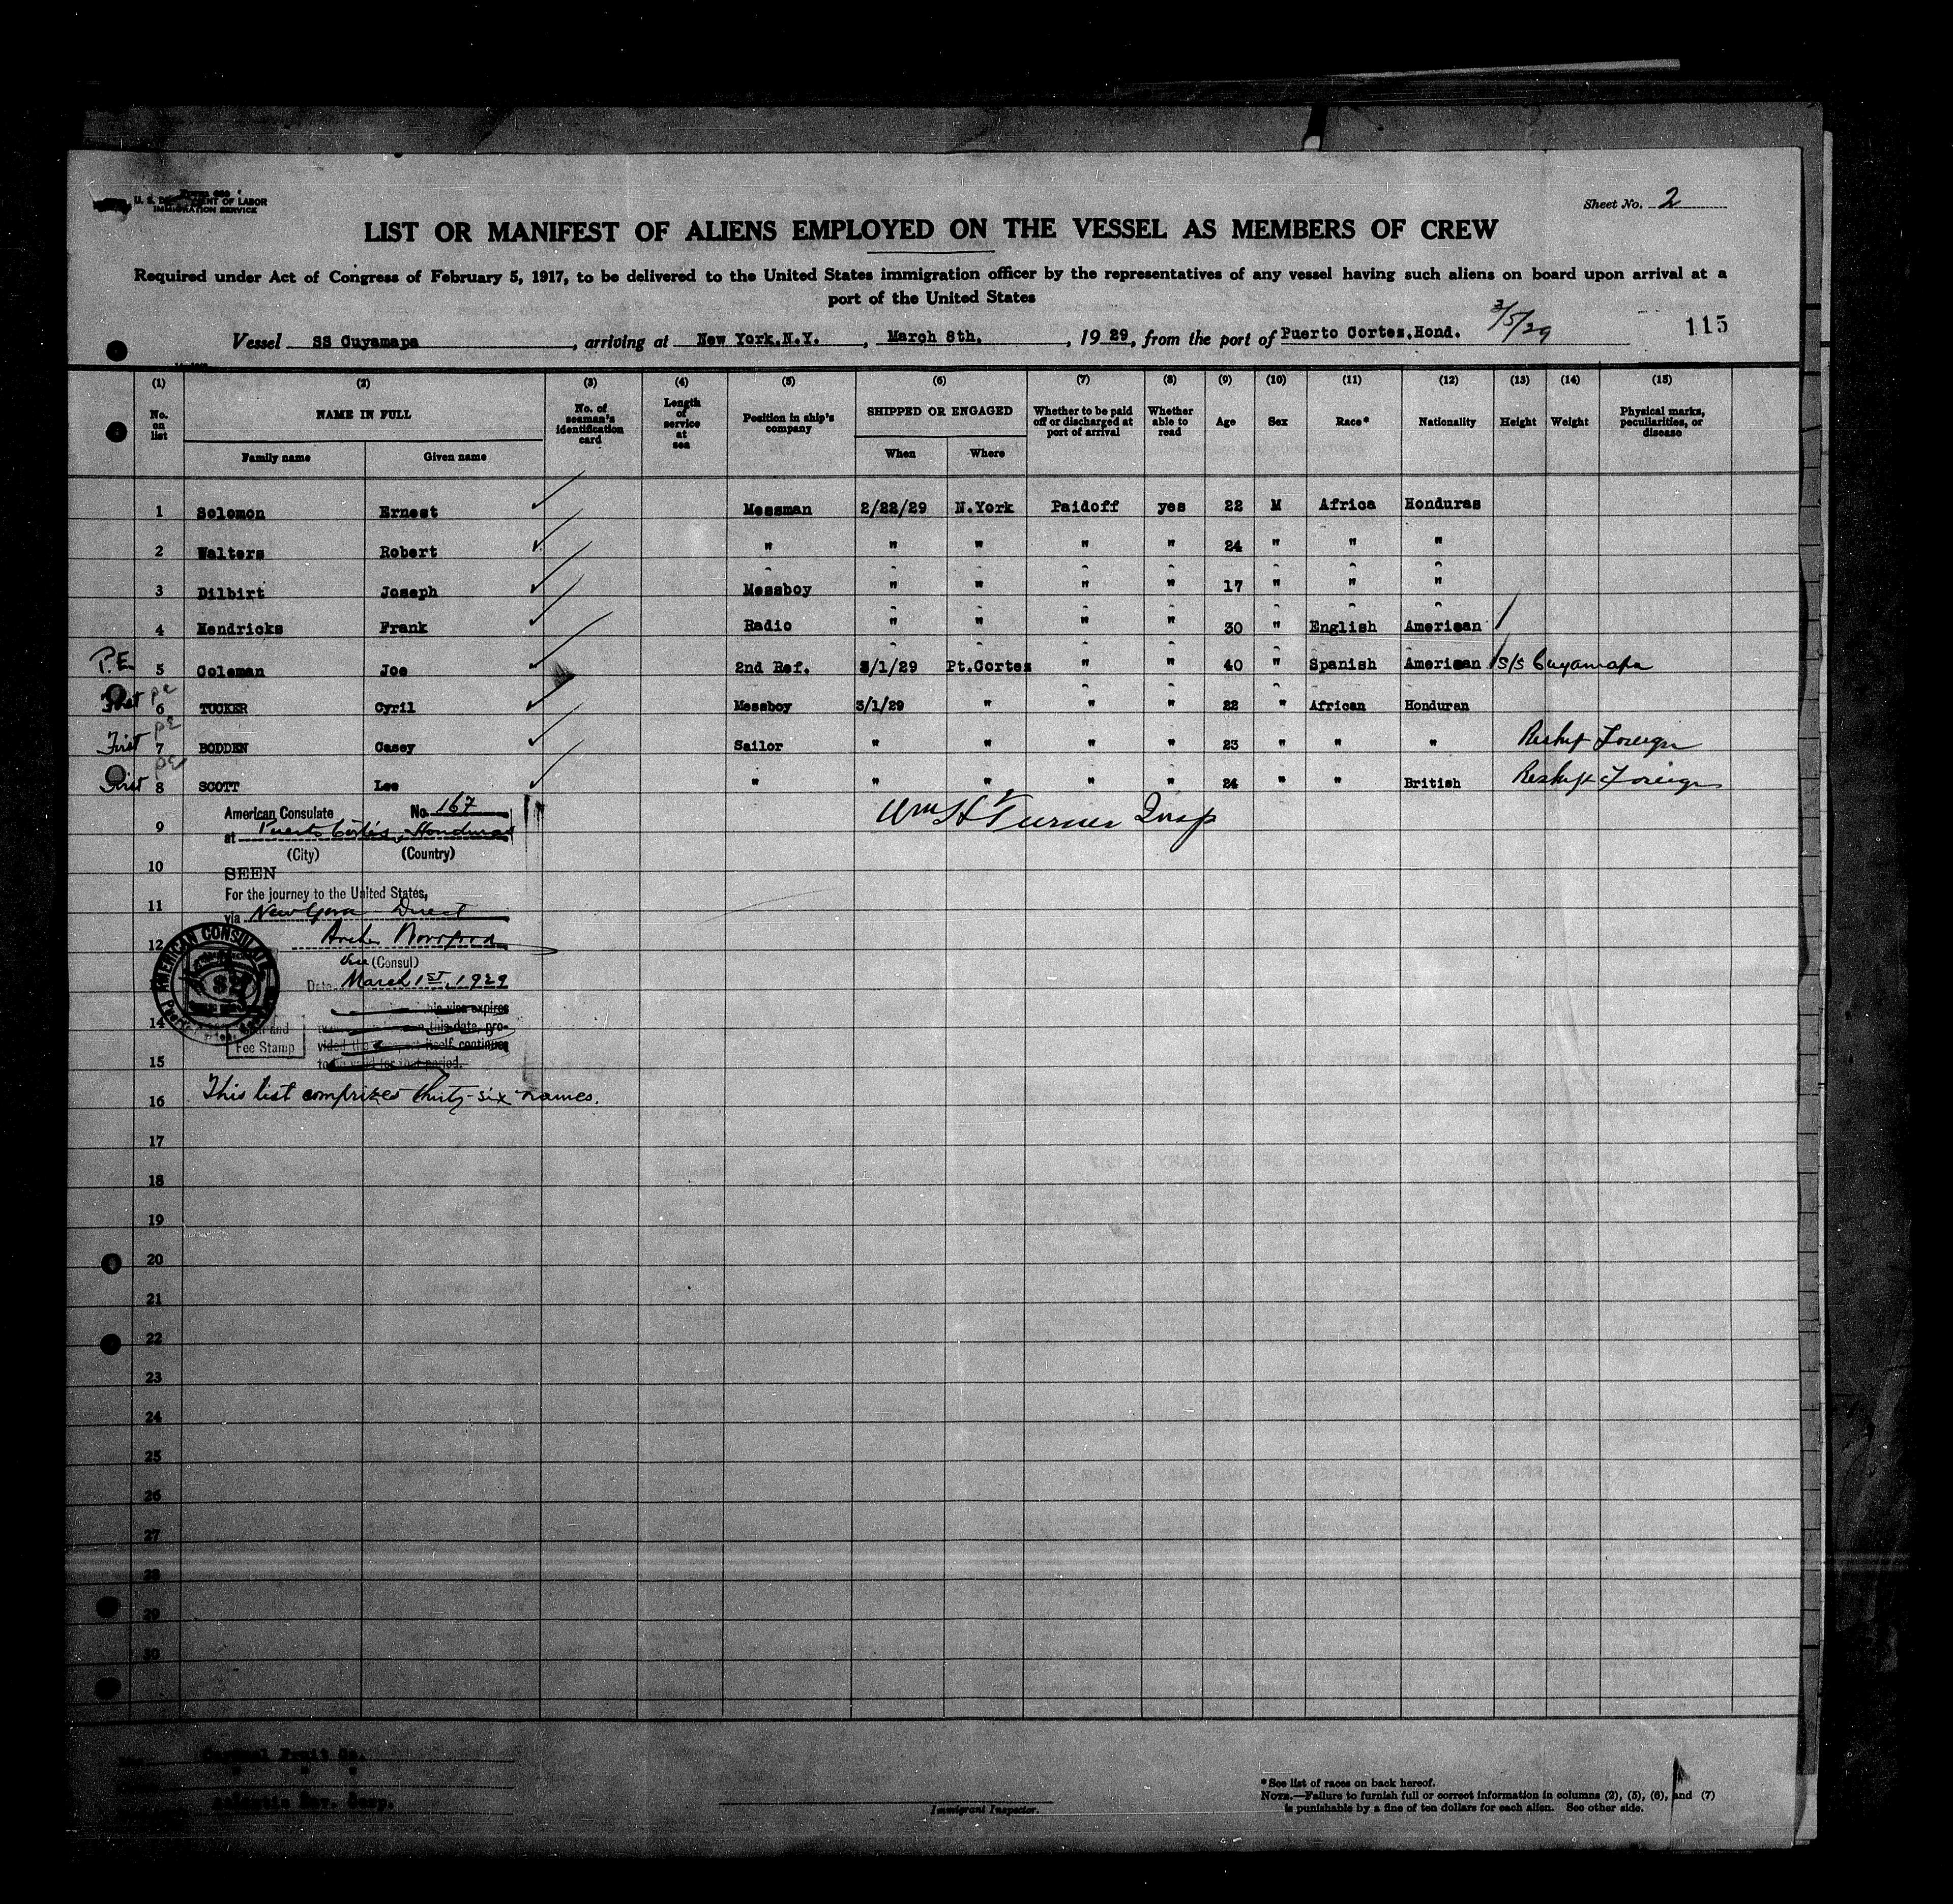 U. S. DEPARTMENT OF LABOR
IMMIGRATION SERVICE
Sheet No. 2
LIST OR MANIFEST OF ALIENS EMPLOYED ON THE VESSEL AS MEMBERS OF CREW
Required under Act of Congress of February 5, 1917, to be delivered to the United States immigration officer by the representatives of any vessel having such aliens on board upon arrival at a
port of the United States
3/5/29
115
Vessel SS Cuyamapa, arriving at New York.N.Y., March 8th., 1929, from the port of Puerto Cortes,Hond.
(1) (2) (3) (4) (5) (6) (7) (8) (9) (10) (11) (12) (13) (14) (15)
No. on list NAME IN FULL No. of seaman's identification card Length of service at sea Position in ship's company SHIPPED OR ENGAGED Whether to be paid off or discharged at port of arrival Whether able to read Age Sex Race* Nationality Height Weight Physical marks, peculiarities, or disease
Family name Given name When Where
1 Solomon Ernest Messman 2/22/29 N.York Paidoff yes 22 M Africa Honduras
2 Walters Robert " " " " " 24 " " "
3 Dilbirt Joseph Messboy " " " " 17 " " "
4 Hendricks Frank Radio " " " " 30 " English American
P.E. 5 Coleman Joe 2nd Ref. 3/1/29 Pt.Cortez " " 40 " Spanish American S/S Cuyamapa
First PE 6 TUCKER Cyril Messboy 3/1/29 " " " 22 " African Honduran
First PE 7 BODDEN Casey Sailor " " " " 23 " " " Reship Foreign
First PE 8 SCOTT Lee " " " " " 24 " " British Reship Foreign
American Consulate No. 167
Wm H Turner Insp
9
at Puerto Cortés, Honduras
(City) (Country)
10
SEEN
For the journey to the United States,
11
via New York Direct
12
Vice (Consul)
AMERICAN CONSULATE
Date March 1st, 1929
13
this visa expires
14
this date, pro-
Fee Stamp
vided the passport itself continues
15
to be valid for that period.
This list comprizes thirty-six names.
16
17
18
19
20
21
22
23
24
25
26
27
28
29
30
Cuyamel Fruit Co.
" " "
Atlantic Nav. Corp.
Immigrant Inspector.
*See list of races on back hereof.
NOTE.—Failure to furnish full or correct information in columns (2), (5), (6), and (7)
is punishable by a fine of ten dollars for each alien. See other side.